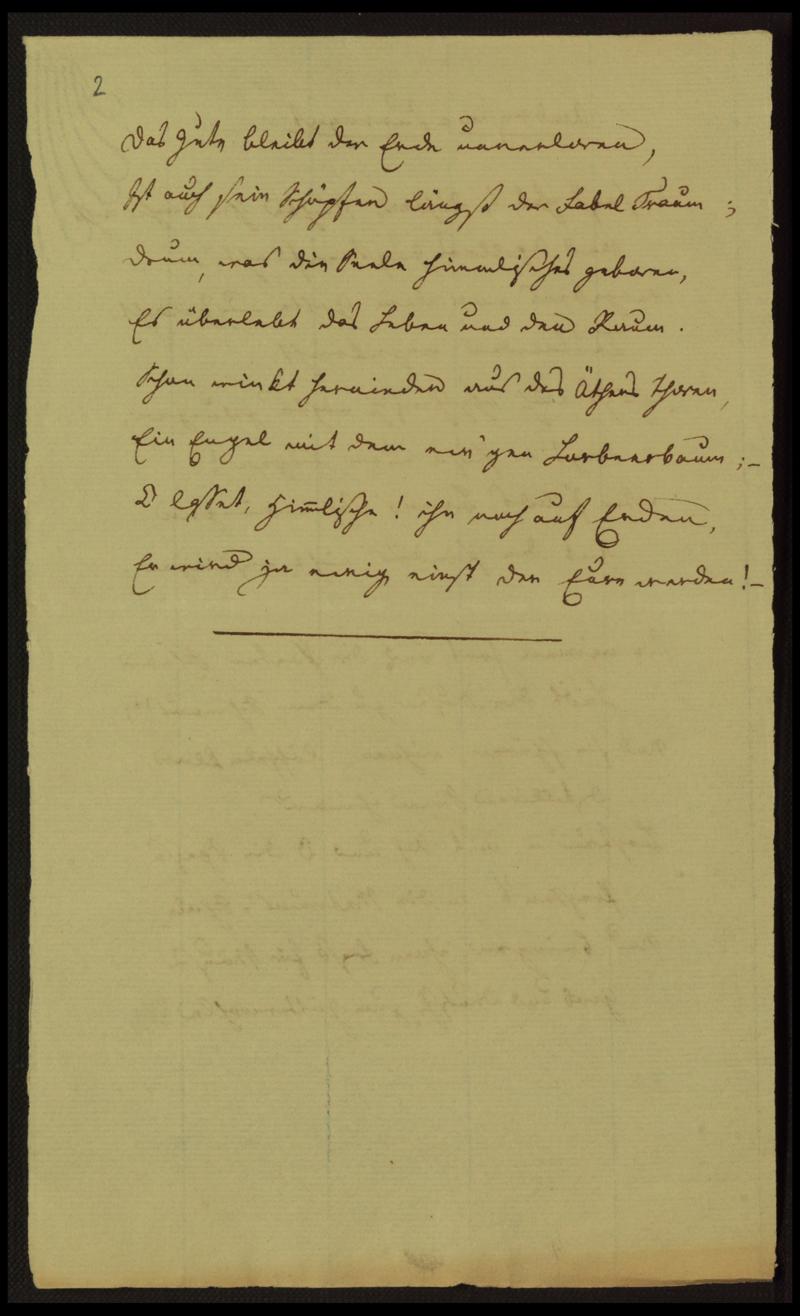 2
Das Gute bleibt der Erde unverloren,
Ist auch sein Schöpfer längst der Fabel Traum;
Drum, was die Seele himmlisches geboren,
Es überlebt das Leben und den Raum.
Schon winkt hernieder aus des Äthers Thoren,
Ein Engel mit dem ew'gen Lorbeerbaum;–
O lasset, Himlische! ihn noch auf Erden,
Er wird ja ewig einst der Eure werden!–